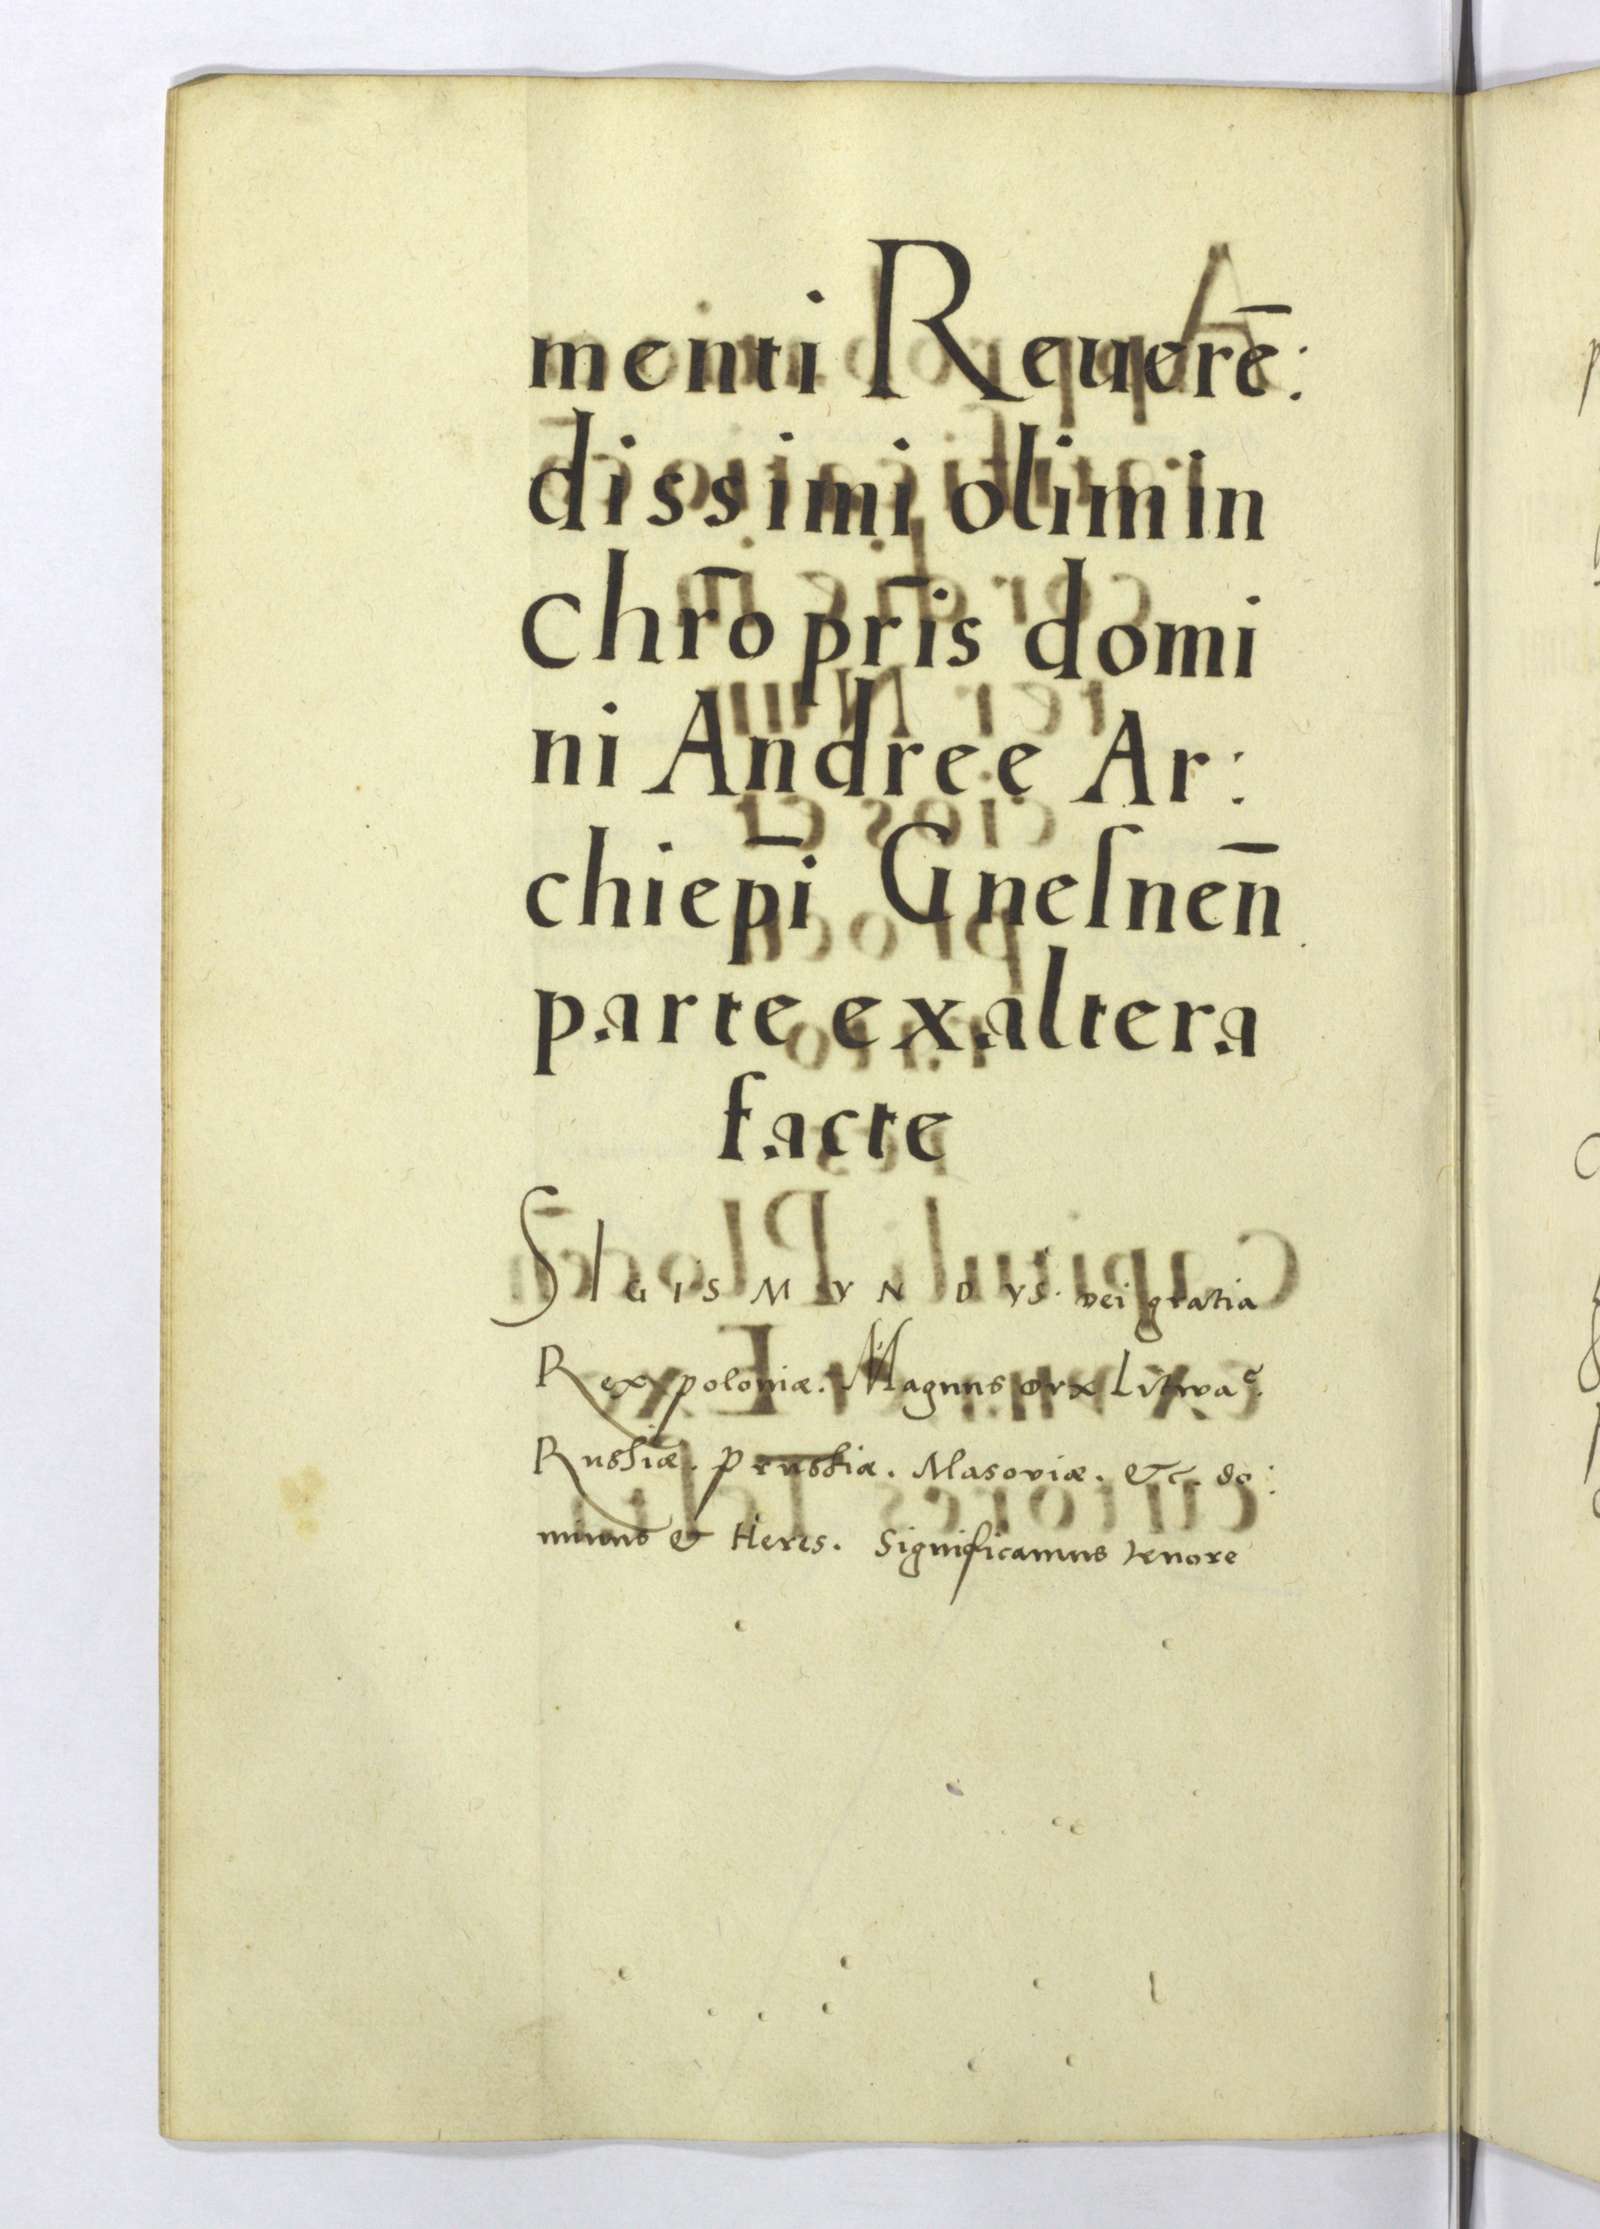 menti Reuerē:
dissimi olim in
chrō pr̄is domi
ni Andree Ar:
chiep̄i Gneſnen̄
parte ex altera
facte
SIGISMVNDVS dei gratia
Rex poloniæ. Magnus dux Litwaᵉ.
Russiæ. prussiæ. Masoviæ. &c. do:
minus & Heres. Significamus tenore